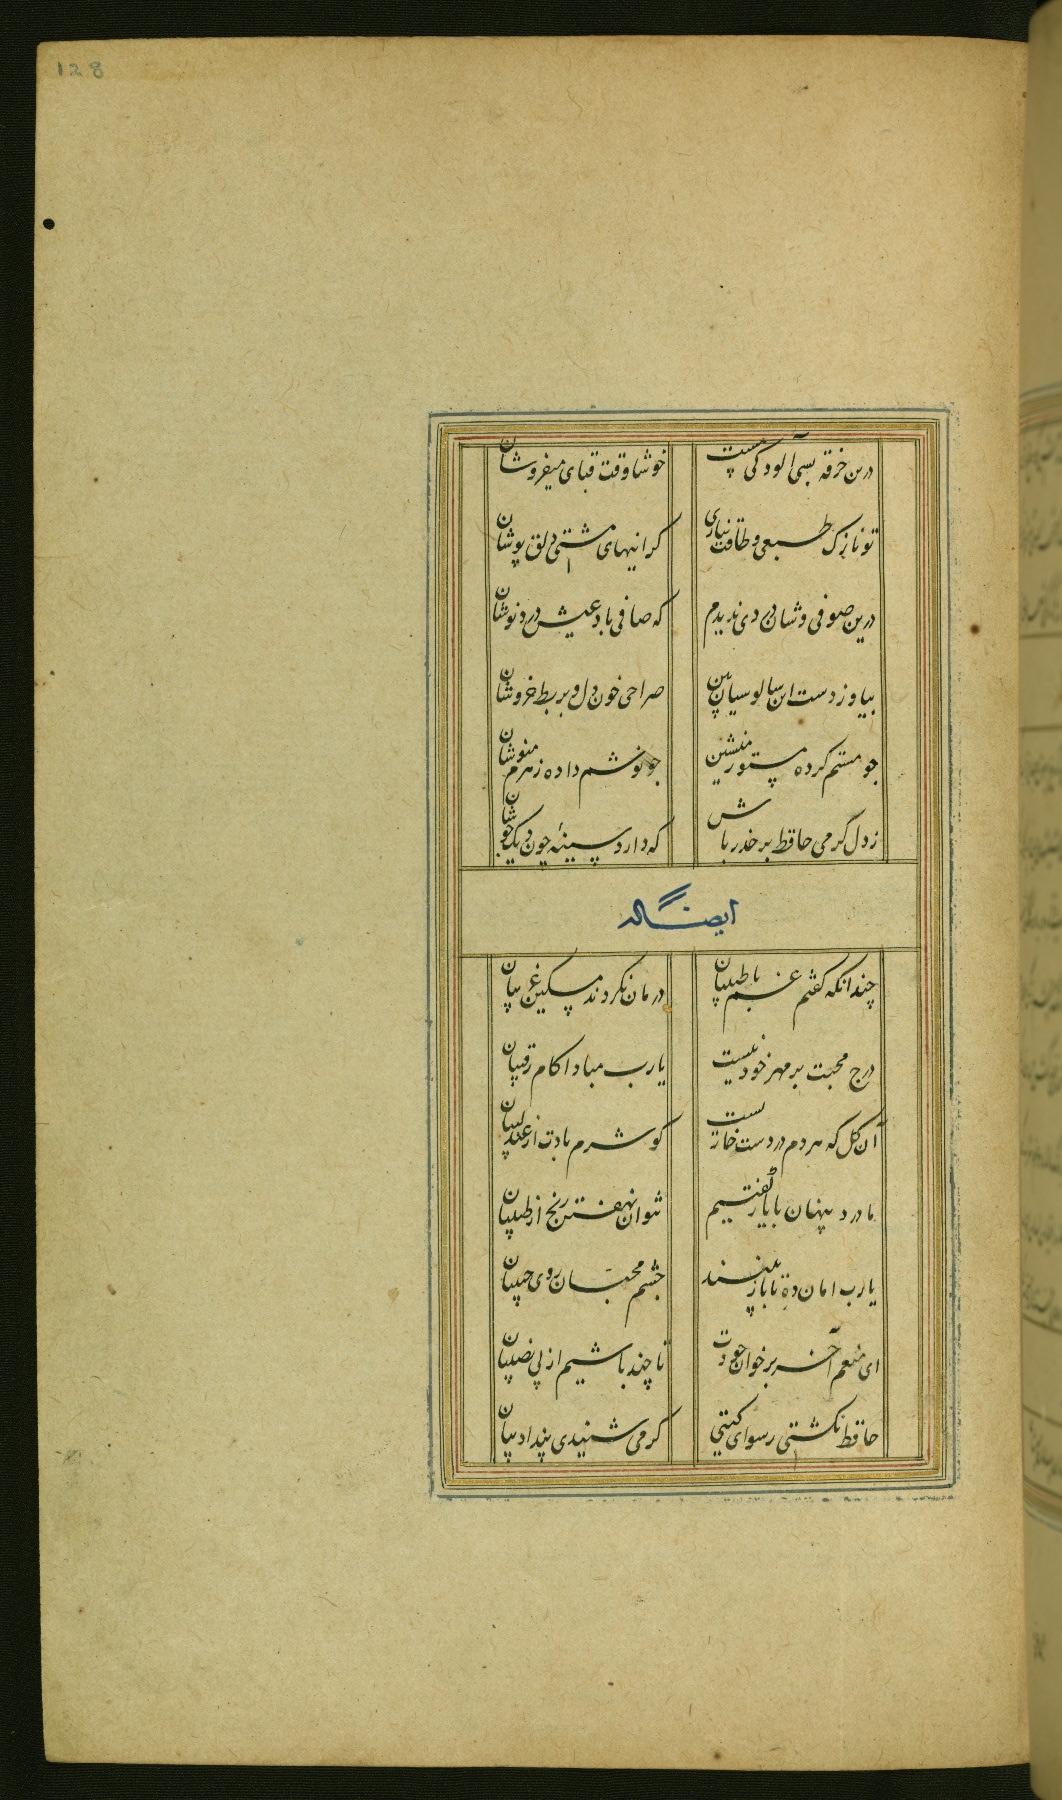 128
درین خرقه بسی آلودگی هست خوشا وقت قبای میفروشان
تو نازک طبعی و طاقت نیاری کرانیهای مشتی دلق پوشان
درین صوفی وشان دردی ندیدم که صافی باد عیش دردنوشان
بیا وز دست این سالوسیان بین صراحی خون دل و بربط خروشان
چو مستم کرده مستور منشین چو نوشم داده زهرم منوشان
ز دل کرمی حافظ بر حذر باش که دارد سینهٔ چون دیک جوشان
ایضاً له
چندانکه کفتم غم با طبیبان درمان نکردند مسکین غریبان
درج محبت بر مهر خود نیست یارب مبادا کام رقیبان
آن کل که هردم در دست خاریست کو شرم بادت از عندلیبان
ما درد پنهان با یار کفتیم نتوان نهفتن رنج از طبیبان
یارب امان ده تا باز بیند چشم محبّان روی حبیبان
ای منعم آخر بر خوان جودت تا چند باشیم از بی نصیبان
حافظ نکشتی رسوای کیتی کر می شنیدی پند ادیبان